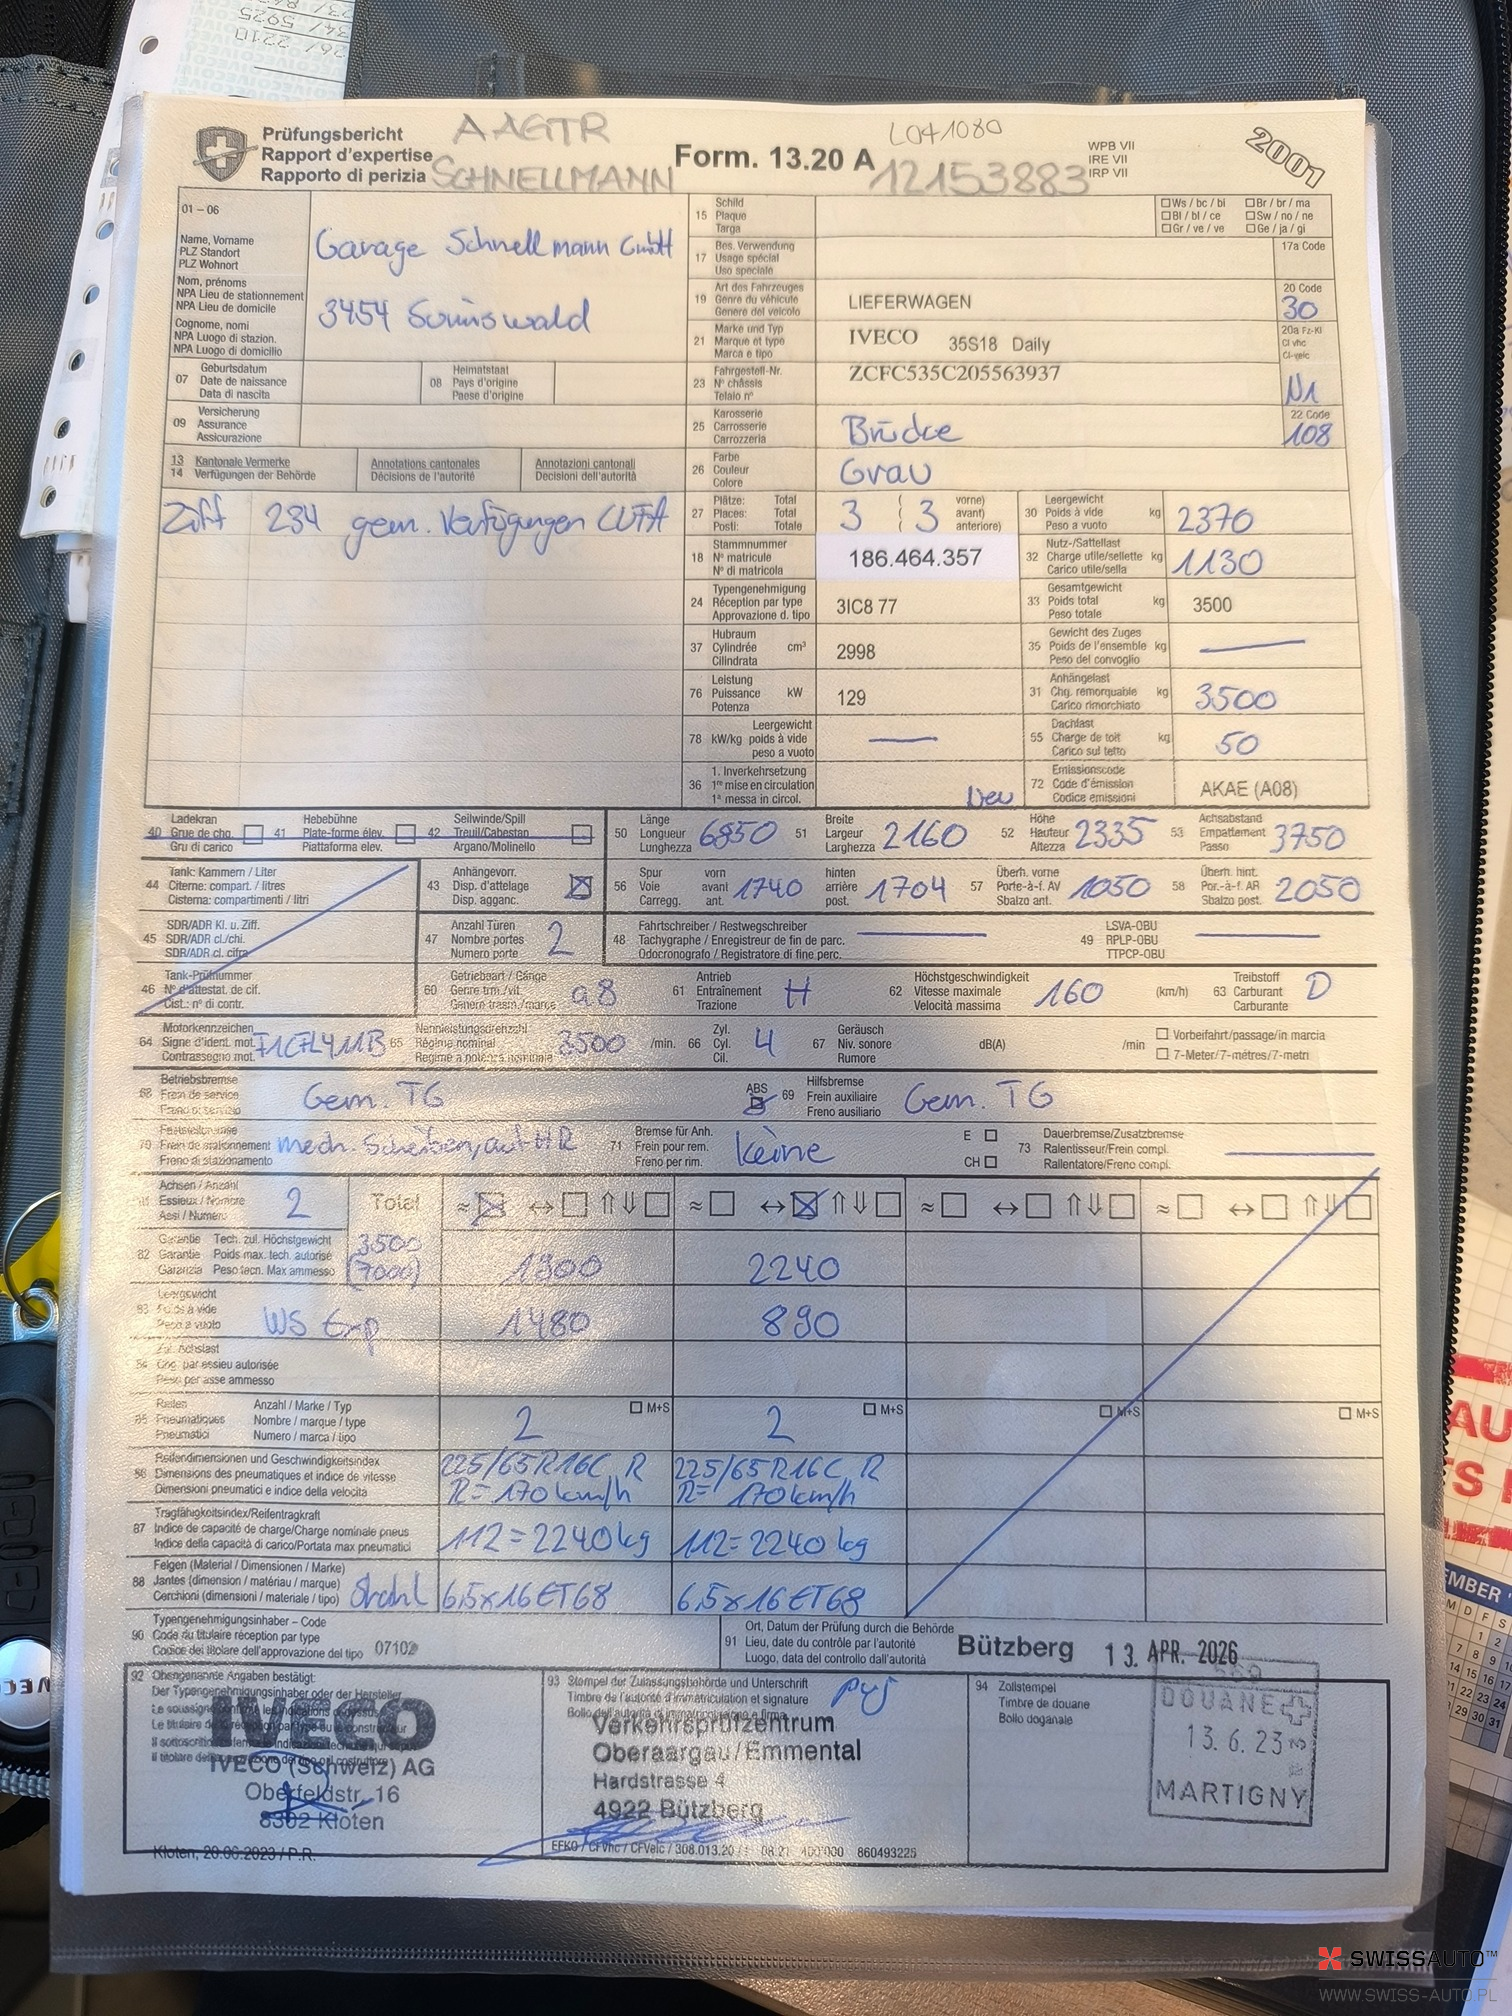 Prüfungsbericht
Rapport d'expertise
Rapporto di perizia
AAGTR
SCHNELLMANN
Form. 13.20 A
L041080
12153883
WPB VII
IRE VII
IRP VII
2001
01 – 06
Name, Vorname
PLZ Standort
PLZ Wohnort
Nom, prénoms
NPA Lieu de stationnement
NPA Lieu de domicile
Cognome, nomi
NPA Luogo di stazion.
NPA Luogo di domicilio
Garage Schnellmann GmbH
3454 Sumiswald
15 Schild
Plaque
Targa
Ws / bc / bi
Bl / bl / ce
Gr / ve / ve
Br / br / ma
Sw / no / ne
Ge / ja / gi
17 Bes. Verwendung
Usage spécial
Uso speciale
17a Code
19 Art des Fahrzeuges
Genre du véhicule
Genere del veicolo
LIEFERWAGEN
20 Code
30
21 Marke und Typ
Marque et type
Marca e tipo
IVECO 35S18 Daily
20a Fz-Kl
Cl vhc
Cl-veic
N1
07 Geburtsdatum
Date de naissance
Data di nascita
08 Heimatstaat
Pays d'origine
Paese d'origine
23 Fahrgestell-Nr.
N° châssis
Telaio n°
ZCFC535C205563937
09 Versicherung
Assurance
Assicurazione
25 Karosserie
Carrosserie
Carrozzeria
Brücke
22 Code
108
13 Kantonale Vermerke
14 Verfügungen der Behörde
Annotations cantonales
Décisions de l'autorité
Annotazioni cantonali
Decisioni dell'autorità
26 Farbe
Couleur
Colore
Grau
Ziff 234 gem. Verfügungen LUFA
27 Plätze: Total
Places: Total
Posti: Totale
3 ( 3 vorne)
avant)
anteriore)
30 Leergewicht
Poids à vide kg
Peso a vuoto
2370
18 Stammnummer
N° matricule
N° di matricola
186.464.357
32 Nutz-/Sattellast
Charge utile/sellette kg
Carico utile/sella
1130
24 Typengenehmigung
Réception par type
Approvazione d. tipo
3IC8 77
33 Gesamtgewicht
Poids total kg
Peso totale
3500
37 Hubraum
Cylindrée cm³
Cilindrata
2998
35 Gewicht des Zuges
Poids de l'ensemble kg
Peso del convoglio
76 Leistung
Puissance kW
Potenza
129
31 Anhängelast
Chg. remorquable kg
Carico rimorchiato
3500
78 kW/kg Leergewicht
poids à vide
peso a vuoto
55 Dachlast
Charge de toit kg
Carico sul tetto
50
36 1. Inverkehrsetzung
1re mise en circulation
1a messa in circol.
Neu
72 Emissionscode
Code d'émission
Codice emissioni
AKAE (A08)
40 Ladekran
Grue de chg.
Gru di carico
41 Hebebühne
Plate-forme élev.
Piattaforma elev.
42 Seilwinde/Spill
Treuil/Cabestan
Argano/Molinello
50 Länge
Longueur
Lunghezza
6850
51 Breite
Largeur
Larghezza
2160
52 Höhe
Hauteur
Altezza
2335
53 Achsabstand
Empattement
Passo
3750
44 Tank: Kammern / Liter
Citerne: compart. / litres
Cisterna: compartimenti / litri
43 Anhängevorr.
Disp. d'attelage
Disp. agganc.
56 Spur
Voie
Carregg.
vorn
avant
ant.
1740
hinten
arrière
post.
1704
57 Überh. vorne
Porte-à-f. AV
Sbalzo ant.
1050
58 Überh. hint.
Por.-à-f. AR
Sbalzo post.
2050
45 SDR/ADR Kl. u. Ziff.
SDR/ADR cl./chi.
SDR/ADR cl. cifra
47 Anzahl Türen
Nombre portes
Numero porte
2
48 Fahrtschreiber / Restwegschreiber
Tachygraphe / Enregistreur de fin de parc.
Odocronografo / Registratore di fine perc.
49 LSVA-OBU
RPLP-OBU
TTPCP-OBU
46 Tank-Prüfnummer
N° d'attestat. de cit.
Cist.: n° di contr.
60 Getriebeart / Gänge
Genre trm./vit.
Genere trasm./marce
a8
61 Antrieb
Entraînement
Trazione
H
62 Höchstgeschwindigkeit
Vitesse maximale
Velocità massima
160
(km/h)
63 Treibstoff
Carburant
Carburante
D
64 Motorkennzeichen
Signe d'ident. mot.
Contrassegno mot.
F1CFL411B
65 Nennleistungsdrehzahl
Régime nominal
Regime a potenza nominale
3500
/min.
66 Zyl.
Cyl.
Cil.
4
67 Geräusch
Niv. sonore
Rumore
dB(A)
/min
Vorbeifahrt/passage/in marcia
7-Meter/7-mètres/7-metri
68 Betriebsbremse
Frein de service
Freno di servizio
Gem. TG
ABS
69 Hilfsbremse
Frein auxiliaire
Freno ausiliario
Gem. TG
70 Feststellbremse
Frein de stationnement
Freno di stazionamento
mech. Scheiben, auf HR
71 Bremse für Anh.
Frein pour rem.
Freno per rim.
keine
E
CH
73 Dauerbremse/Zusatzbremse
Ralentisseur/Frein compl.
Rallentatore/Freno compl.
Achsen / Anzahl
Essieux / Nombre
Assi / Numero
2
Total
≈ ↔ ⇑⇓ ≈ ↔ ⇑⇓ ≈ ↔ ⇑⇓ ≈ ↔ ⇑⇓
82 Garantie Tech. zul. Höchstgewicht
Garantie Poids max. tech. autorisé
Garanzia Peso tecn. Max ammesso
3500
(7000)
1900
2240
83 Leergewicht
Poids à vide
Peso a vuoto
WS Exp
1480
890
84 Zul. Achslast
Chg. par essieu autorisée
Peso per asse ammesso
85 Reifen
Pneumatiques
Pneumatici
Anzahl / Marke / Typ
Nombre / marque / type
Numero / marca / tipo
2
M+S
2
M+S
M+S
M+S
86 Reifendimensionen und Geschwindigkeitsindex
Dimensions des pneumatiques et indice de vitesse
Dimensioni pneumatici e indice della velocità
225/65R16C R
R=170km/h
225/65R16C R
R= 170km/h
87 Tragfähigkeitsindex/Reifentragkraft
Indice de capacité de charge/Charge nominale pneus
Indice della capacità di carico/Portata max pneumatici
112=2240kg
112=2240kg
88 Felgen (Material / Dimensionen / Marke)
Jantes (dimension / matériau / marque)
Cerchioni (dimensioni / materiale / tipo)
Stahl
6,5x16 ET68
6,5x16 ET68
90 Typengenehmigungsinhaber – Code
Code du titulaire réception par type
Codice del titolare dell'approvazione del tipo
07102
91 Ort, Datum der Prüfung durch die Behörde
Lieu, date du contrôle par l'autorité
Luogo, data del controllo dall'autorità
Bützberg 13. APR. 2026
92 Obengenannte Angaben bestätigt:
Der Typengenehmigungsinhaber oder der Hersteller
IVECO
IVECO (Schweiz) AG
Oberfeldstr. 16
8302 Kloten
Kloten, 20.06.2023 / P.R.
93 Stempel der Zulassungsbehörde und Unterschrift
Timbre de l'autorité d'immatriculation et signature
Verkehrsprüfzentrum
Oberaargau/Emmental
Hardstrasse 4
4922 Bützberg
94 Zollstempel
Timbre de douane
Bollo doganale
DOUANE
13.6.23
MARTIGNY
860493225
SWISSAUTO™
WWW.SWISS-AUTO.PL